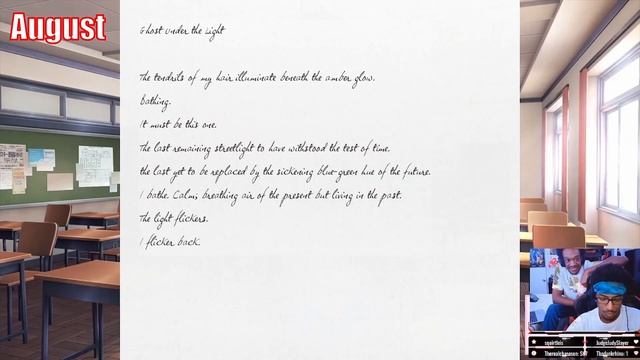 August
Ghost Under the Light
The tendrils of my hair illuminate beneath the amber glow.
Bathing.
It must be this one.
The last remaining streetlight to have withstood the test of time.
the last yet to be replaced by the sickening blue-green hue of the future.
I bathe. Calm; breathing air of the present but living in the past.
The light flickers.
I flicker back.
JudgeJudySlayer